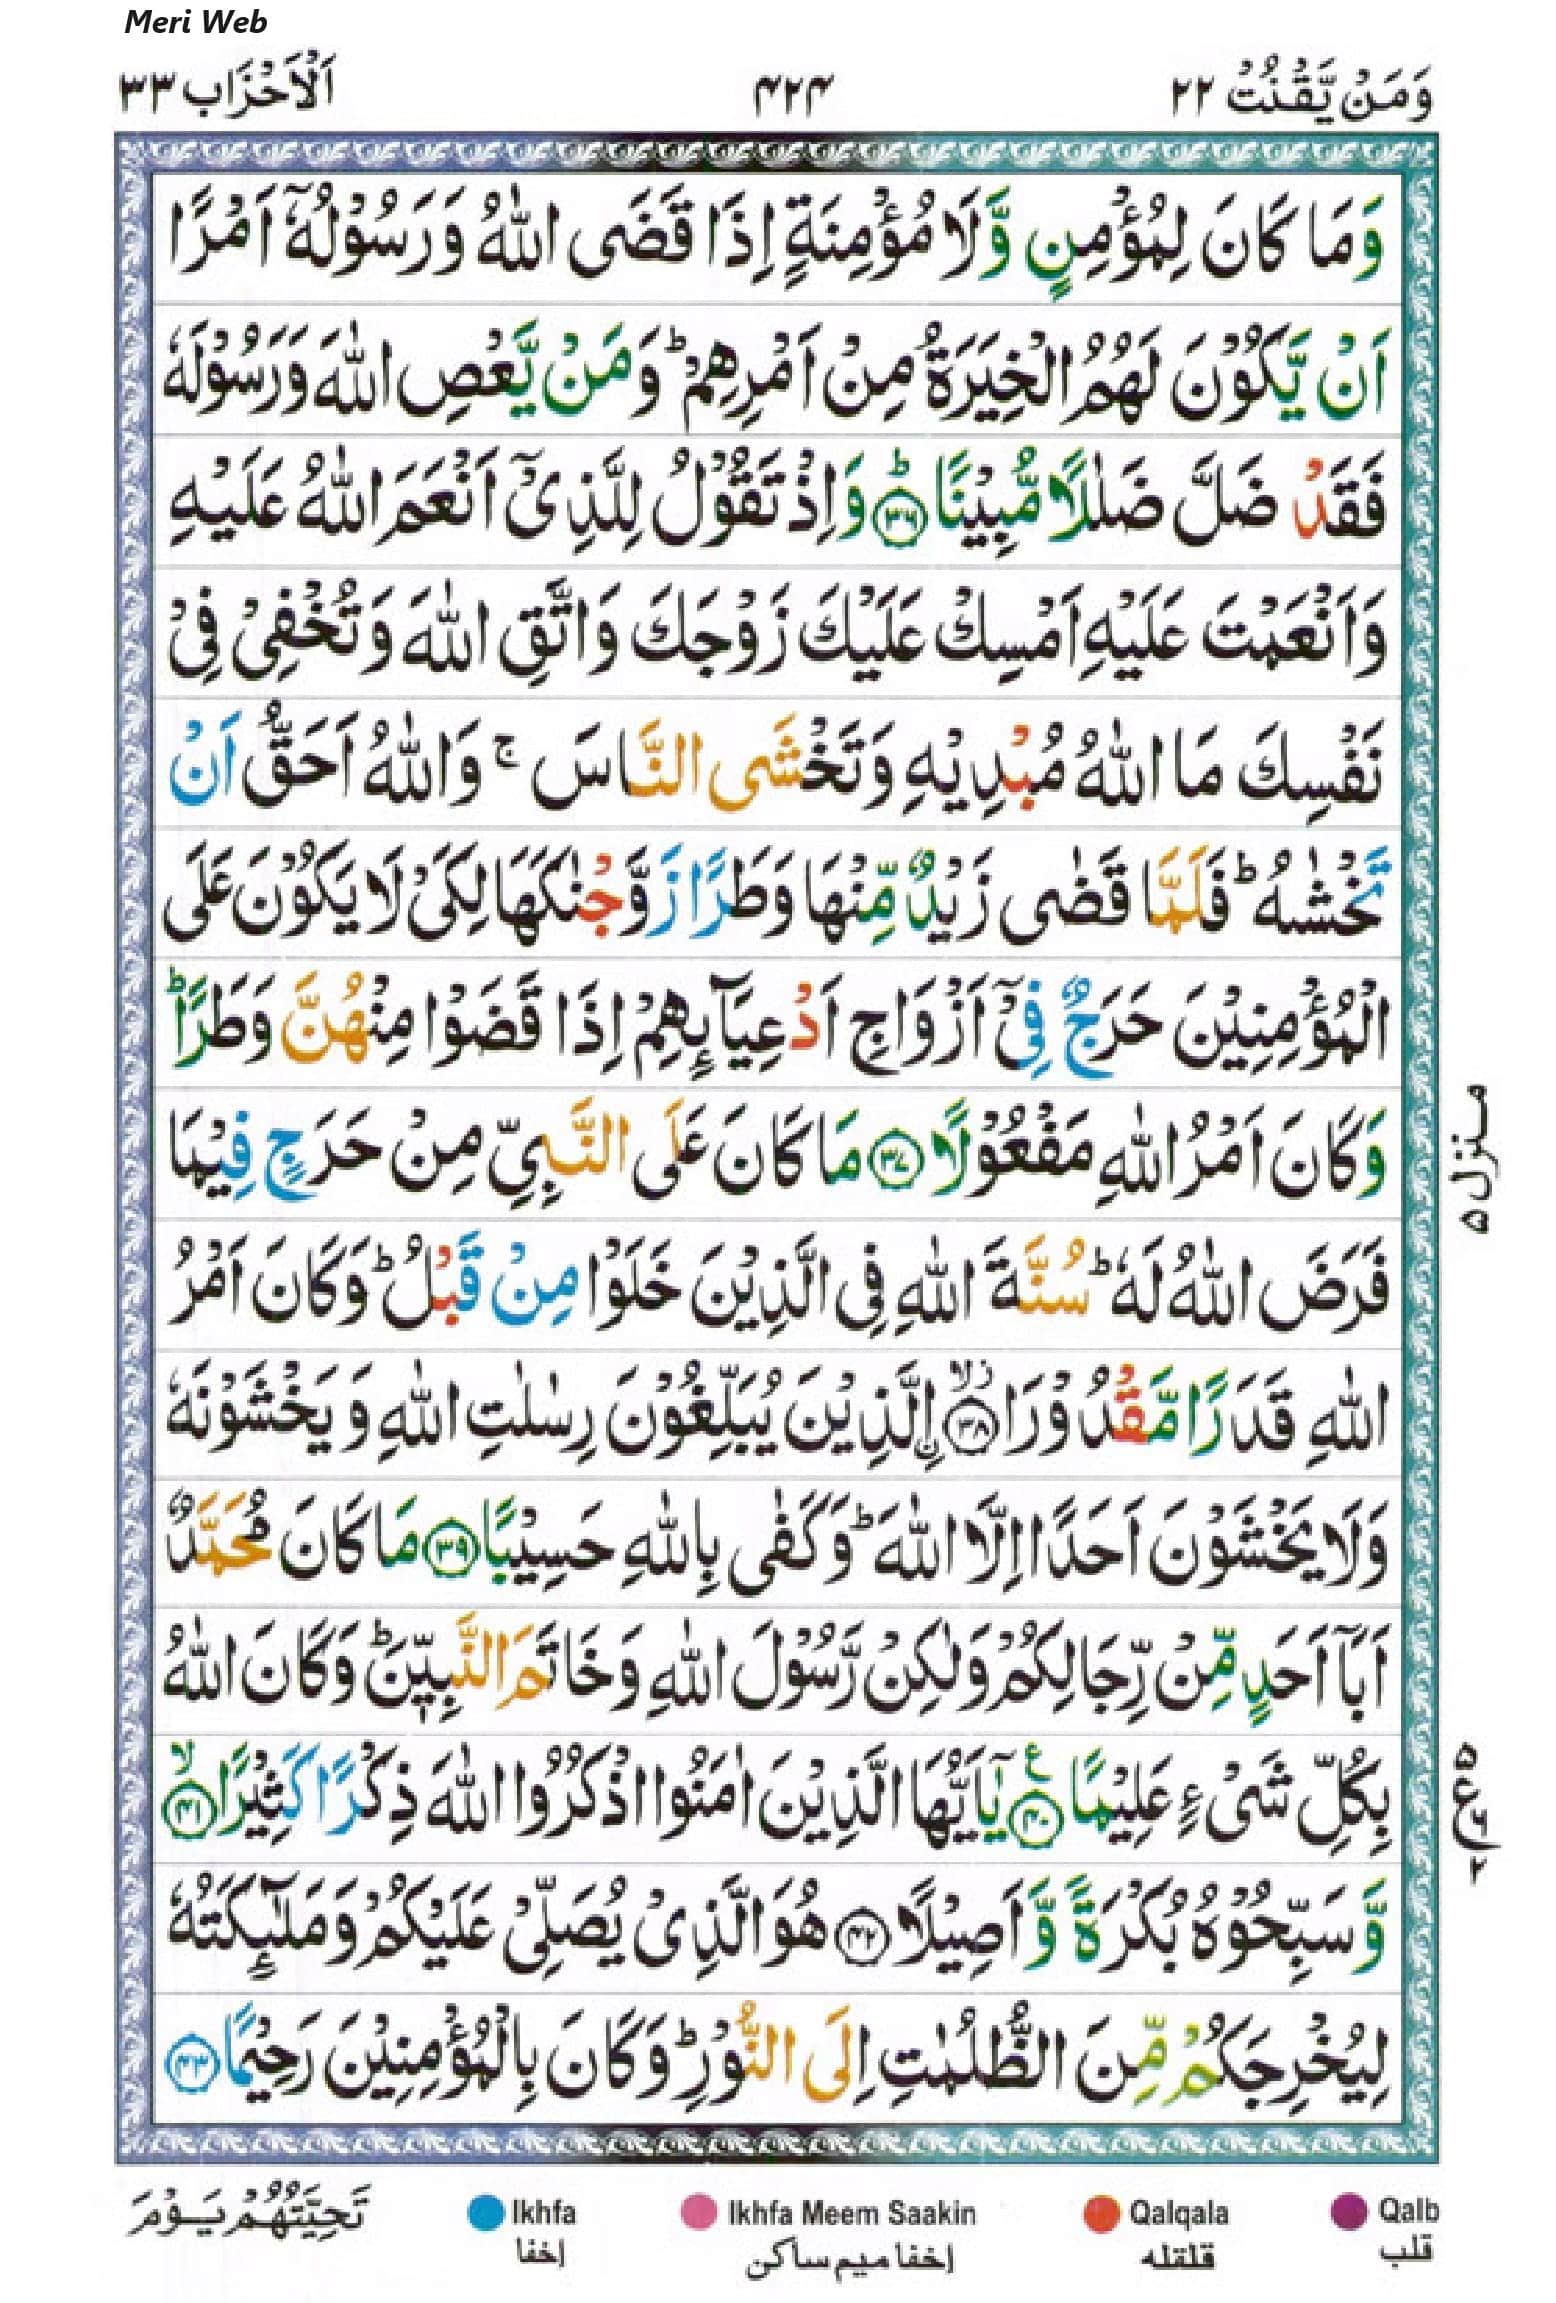 Meri Web
وَمَنْ يَّقْنُتْ ۲۲ ۴۲۴ اَلْاَحْزَاب ۳۳
وَمَا كَانَ لِمُؤْمِنٍ وَّلَا مُؤْمِنَةٍ اِذَا قَضَى اللّٰهُ وَرَسُوْلُهٗۤ اَمْرًا
اَنْ يَّكُوْنَ لَهُمُ الْخِيَرَةُ مِنْ اَمْرِهِمْ ؕ وَمَنْ يَّعْصِ اللّٰهَ وَرَسُوْلَهٗ
فَقَدْ ضَلَّ ضَلٰلًا مُّبِيْنًا ؕ﴿۳۶﴾ وَاِذْ تَقُوْلُ لِلَّذِيْۤ اَنْعَمَ اللّٰهُ عَلَيْهِ
وَاَنْعَمْتَ عَلَيْهِ اَمْسِكْ عَلَيْكَ زَوْجَكَ وَاتَّقِ اللّٰهَ وَتُخْفِيْ فِيْ
نَفْسِكَ مَا اللّٰهُ مُبْدِيْهِ وَتَخْشَى النَّاسَ ۚ وَاللّٰهُ اَحَقُّ اَنْ
تَخْشٰىهُ ؕ فَلَمَّا قَضٰى زَيْدٌ مِّنْهَا وَطَرًا زَوَّجْنٰكَهَا لِكَيْ لَا يَكُوْنَ عَلَى
الْمُؤْمِنِيْنَ حَرَجٌ فِيْۤ اَزْوَاجِ اَدْعِيَآئِهِمْ اِذَا قَضَوْا مِنْهُنَّ وَطَرًا ؕ
وَكَانَ اَمْرُ اللّٰهِ مَفْعُوْلًا ﴿۳۷﴾ مَا كَانَ عَلَى النَّبِيِّ مِنْ حَرَجٍ فِيْمَا
فَرَضَ اللّٰهُ لَهٗ ؕ سُنَّةَ اللّٰهِ فِي الَّذِيْنَ خَلَوْا مِنْ قَبْلُ ؕ وَكَانَ اَمْرُ
اللّٰهِ قَدَرًا مَّقْدُوْرَا ﴿۳۸﴾ اِۨلَّذِيْنَ يُبَلِّغُوْنَ رِسٰلٰتِ اللّٰهِ وَيَخْشَوْنَهٗ
وَلَا يَخْشَوْنَ اَحَدًا اِلَّا اللّٰهَ ؕ وَكَفٰى بِاللّٰهِ حَسِيْبًا ﴿۳۹﴾ مَا كَانَ مُحَمَّدٌ
اَبَاۤ اَحَدٍ مِّنْ رِّجَالِكُمْ وَلٰكِنْ رَّسُوْلَ اللّٰهِ وَخَاتَمَ النَّبِيّٖنَ ؕ وَكَانَ اللّٰهُ
بِكُلِّ شَيْءٍ عَلِيْمًا ﴿۴۰﴾ يٰۤاَيُّهَا الَّذِيْنَ اٰمَنُوا اذْكُرُوا اللّٰهَ ذِكْرًا كَثِيْرًا ۙ﴿۴۱﴾
وَّسَبِّحُوْهُ بُكْرَةً وَّاَصِيْلًا ﴿۴۲﴾ هُوَ الَّذِيْ يُصَلِّيْ عَلَيْكُمْ وَمَلٰٓئِكَتُهٗ
لِيُخْرِجَكُمْ مِّنَ الظُّلُمٰتِ اِلَى النُّوْرِ ؕ وَكَانَ بِالْمُؤْمِنِيْنَ رَحِيْمًا ﴿۴۳﴾
منزل ۵
ع ۵ ۶ ۲
تَحِيَّتُهُمْ يَوْمَ
Ikhfa
إخفا
Ikhfa Meem Saakin
إخفا ميم ساكن
Qalqala
قلقله
Qalb
قلب